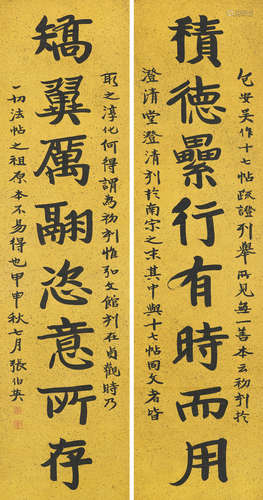 包安吴作十七帖疏證列舉所見無一善本云初刻於
積德纍行有時而用
澄清堂澄清刻於南宋之末其中與十七帖同文者皆
取之淳化何得謂為初刻惟弘文館刻在貞觀時乃
矯翼厲翮恣意所存
一切法帖之祖原本不易得也甲申秋七月張伯英